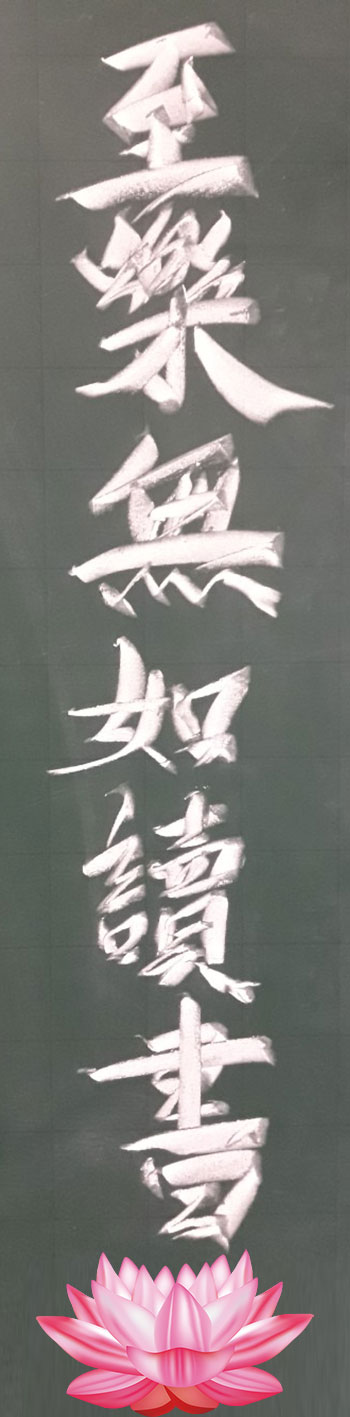 至樂無如讀書